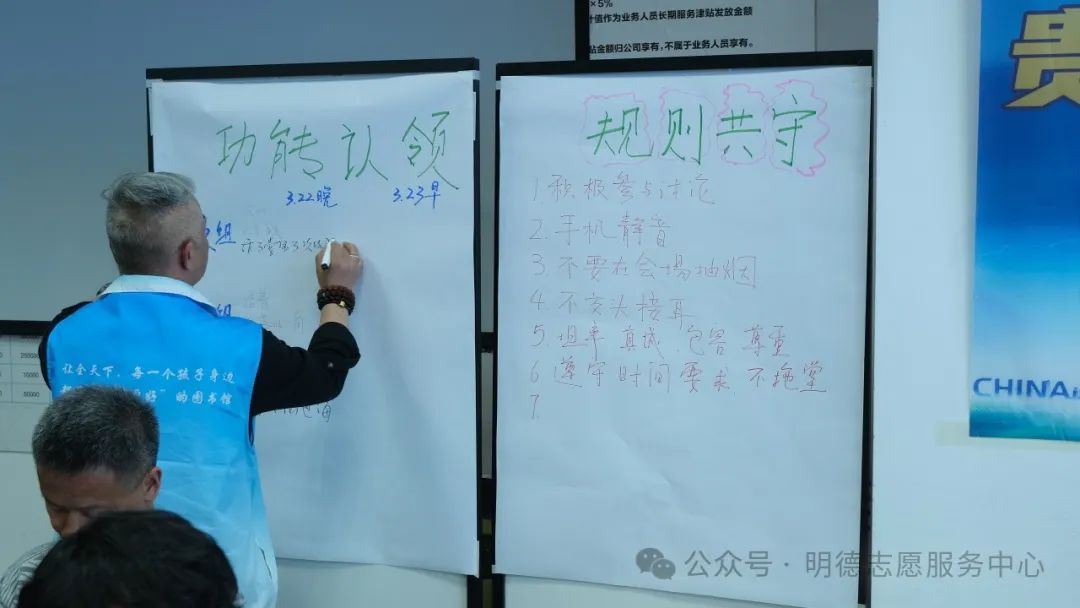 ×5%
计值作为业务人员长期服务津贴发放金额
贴金额归公司享有,不属于业务人员享有。
贵
功能认领
3.22晚 3.23早
组
组
规则共守
1.积极参与讨论
2.手机静音
3.不要在会场抽烟
4.不交头接耳
5.坦率 真诚.包容 尊重
6 遵守时间要求.不拖堂
7.
让全天下,每一个孩子身边
的图书馆
250000
10000
50000
CHINA
公众号·明德志愿服务中心